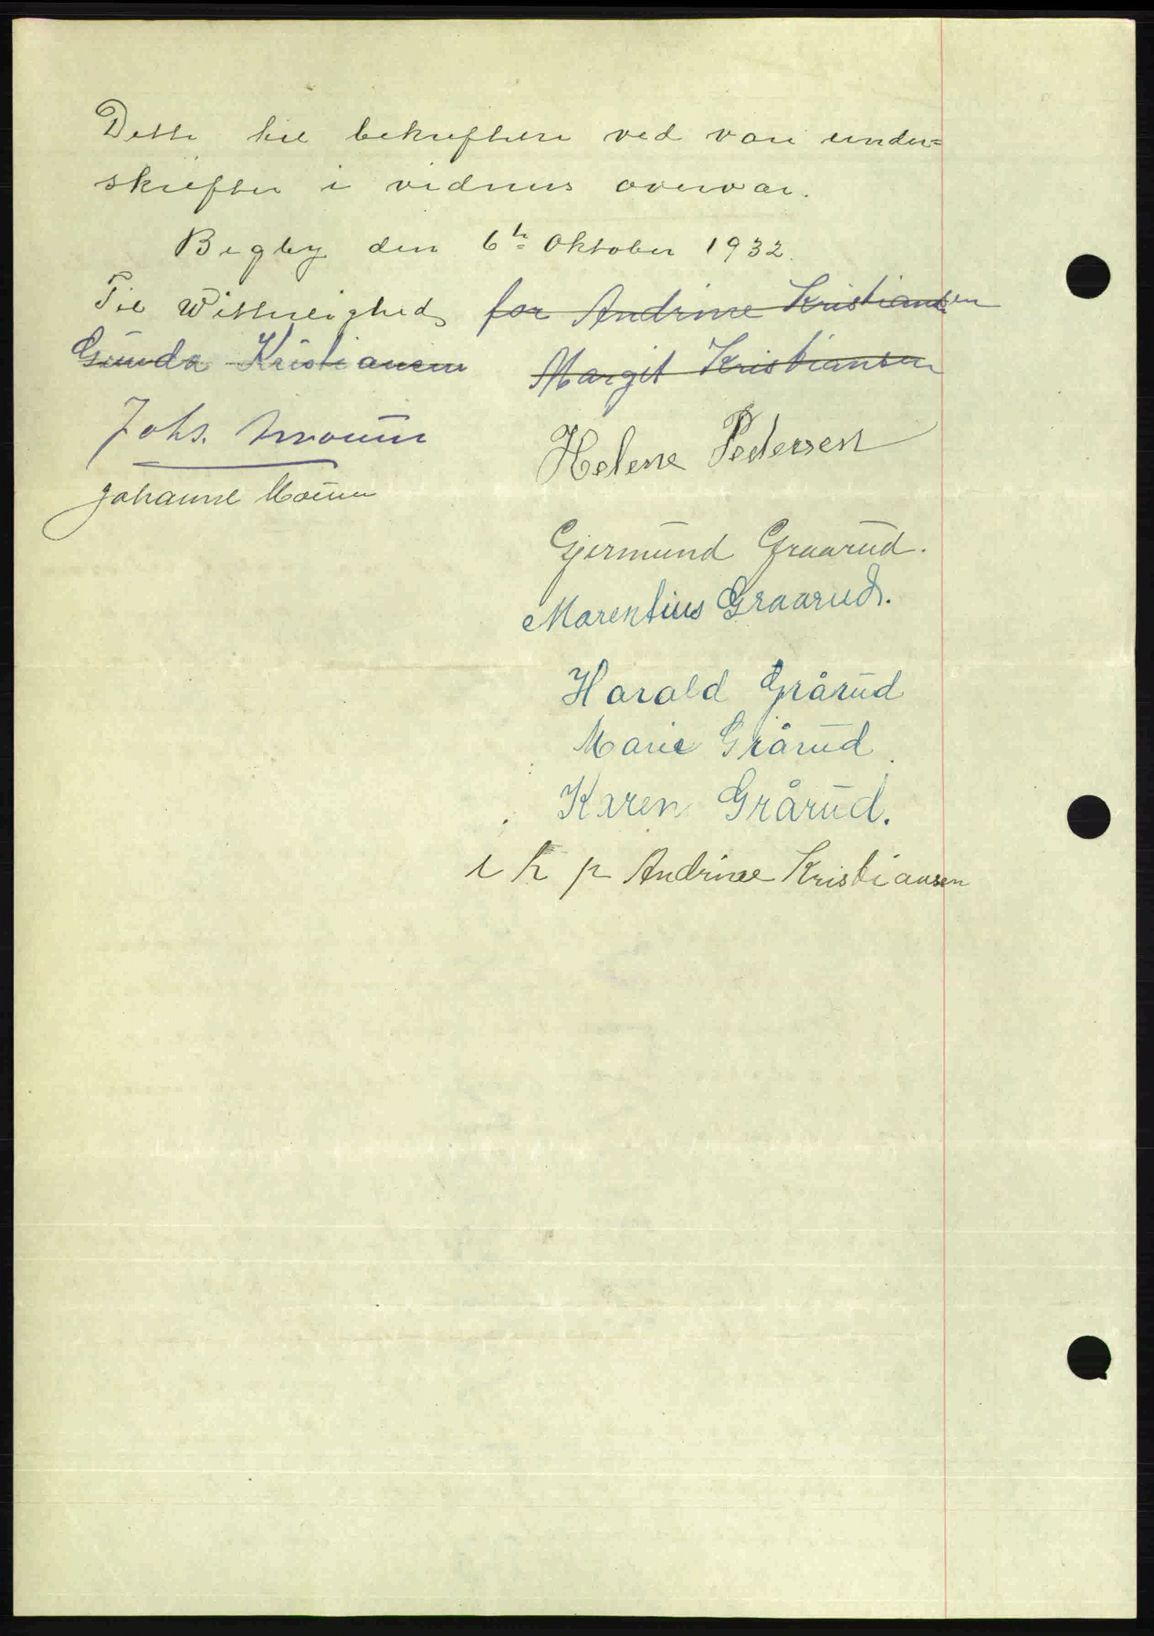 Dette til bekreftelse ved vore under=
skrifter i vidners overvær.
Bygby den 6te Oktober 1932.
Til Witterlighed
for Andrine Kristiansen
Gunda Kristiansen
Margit Kristiansen
Johs. Moum
Helene Pedersen
Johanne Moum
Gjermund Graarud.
Marentius Graarud.
Harald Grårud
Marie Grårud
Karen Grårud.
Andrine Kristiansen